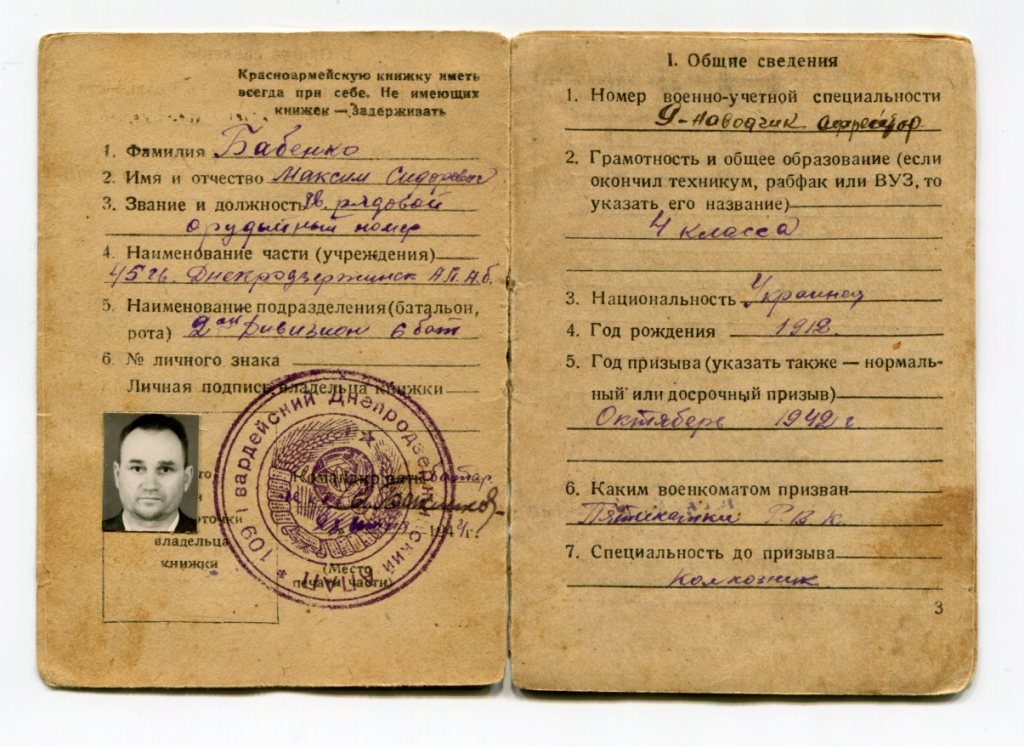 Красноармейскую книжку иметь
всегда при себе. Не имеющих
книжек — Задерживать
1. Фамилия Бабенко
2. Имя и отчество Максим Сидорович
3. Звание и должность гв. рядовой
орудийный номер
4. Наименование части (учреждения)
45 гв. Днепродзержинск А.П.А.б.
5. Наименование подразделения (батальон,
рота) 2ой дивизион 6 бат
6. № личного знака
Личная подпись владельца книжки
Командир роты батар.
194
владельца
книжки
(Место
печати части)
109 гвардейский Днепродзержинский
I. Общие сведения
1. Номер военно-учетной специальности
9-наводчик
2. Грамотность и общее образование (если
окончил техникум, рабфак или ВУЗ, то
указать его название)
4 класса
3. Национальность Украинец
4. Год рождения 1912.
5. Год призыва (указать также — нормаль-
ный или досрочный призыв)
Октябрь 1942 г.
6. Каким военкоматом призван
Пятихатки Р.В.К.
7. Специальность до призыва
колхозник
3